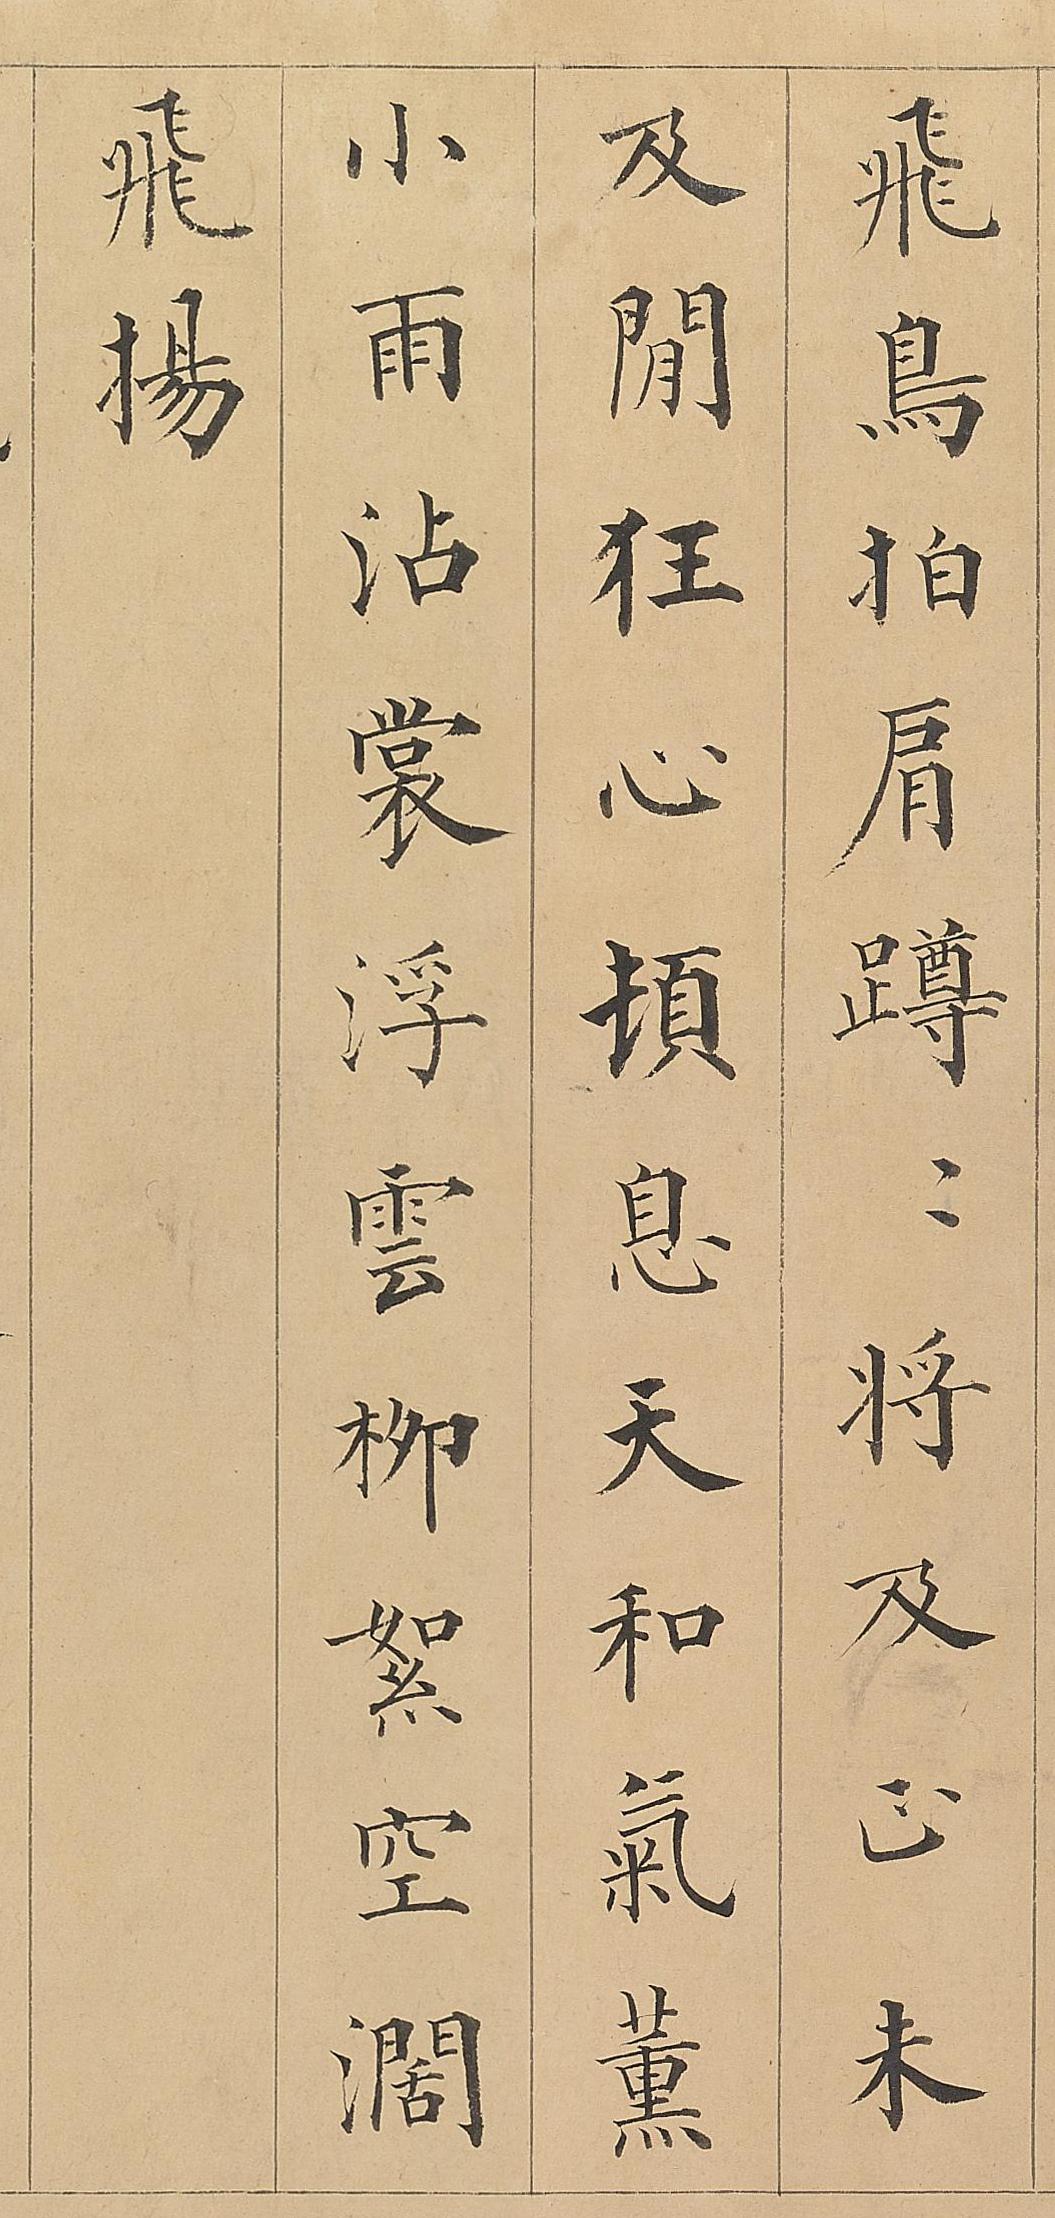 飛鳥拍肩蹲〻將及已未
及閒狂心頓息天和氣薰
小雨沾裳浮雲柳絮空濶
飛揚